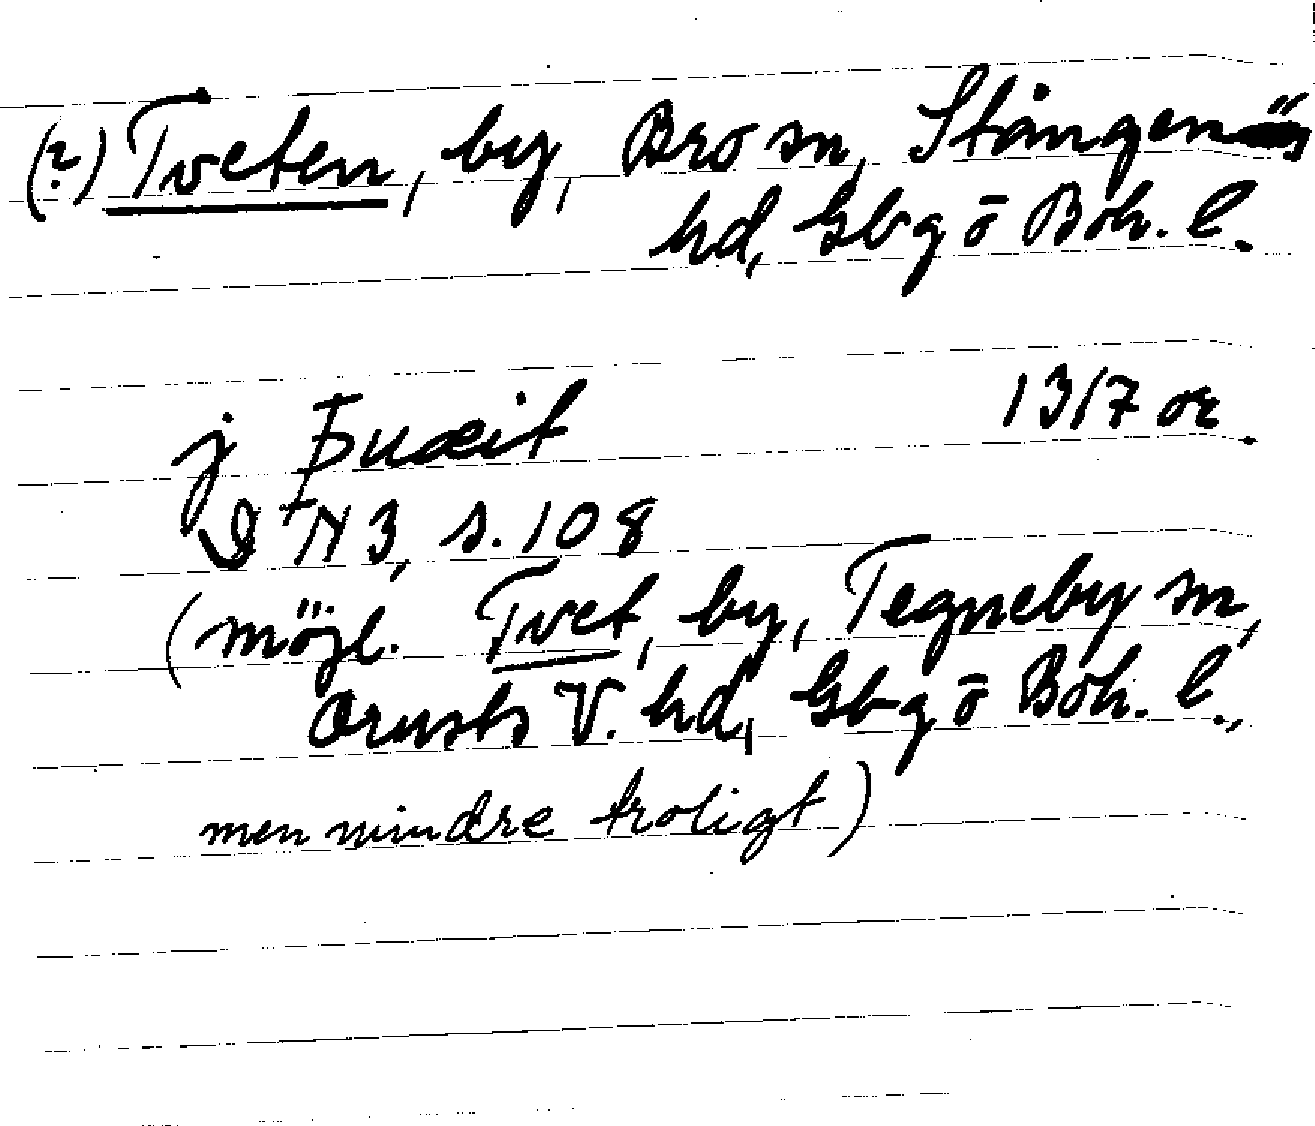 (?) Tveten, by, Bro sn, Stångenäs
hd, Gbg o Boh. l.
j Þuæit 1317 or.
DN 3, s. 108
(möjl. Tvet, by, Tegneby sn,
Orusts V. hd, Gbg o Boh. l.,
men mindre troligt)